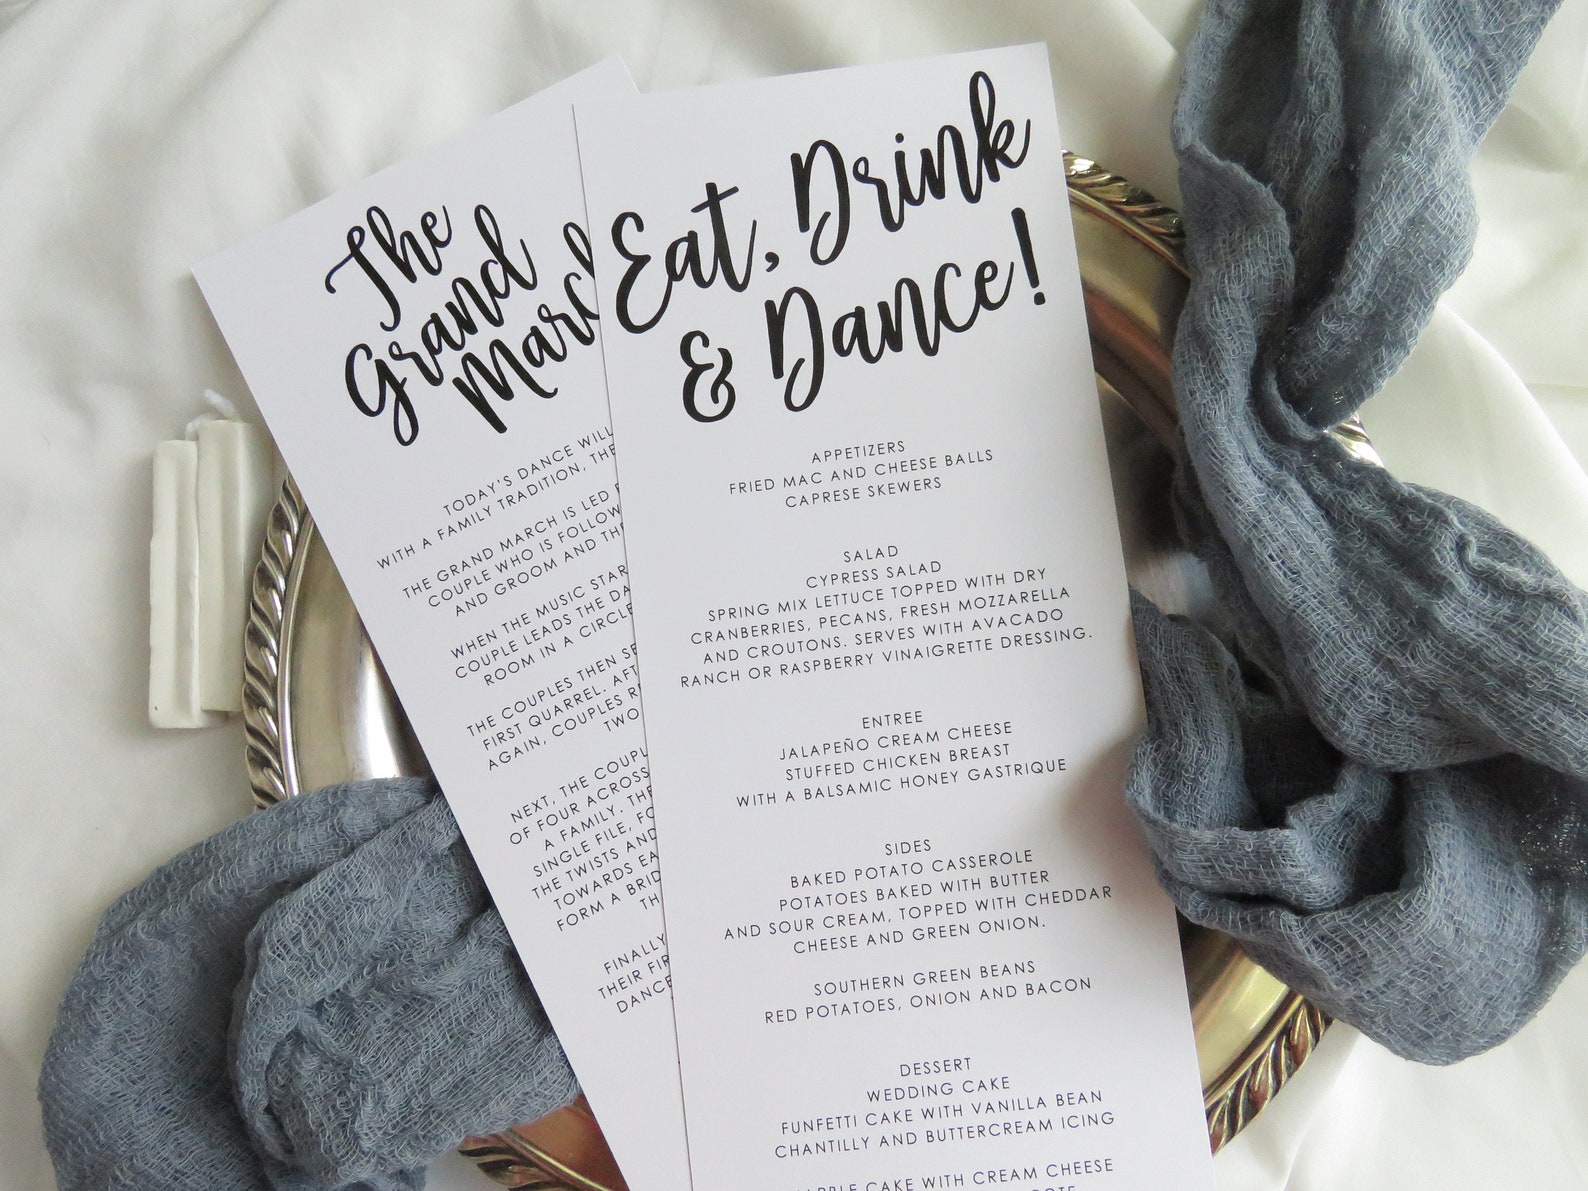 The
Grand
TODAY'S DANCE WILL
WITH A FAMILY TRADITION, THE
THE GRAND MARCH IS LED
COUPLE WHO IS
AND GROOM AND
WHEN THE MUSIC
COUPLE LEADS THE
ROOM IN A CIRCLE
THE COUPLES THEN
FIRST QUARREL.
AGAIN, COUPLES
TWO
NEXT, THE
OF FOUR ACROSS
A FAMILY.
SINGLE FILE,
THE TWISTS AND
TOWARDS
FORM A
FINALLY
THEIR
DANCE
Eat, Drink
& Dance!
APPETIZERS
FRIED MAC AND CHEESE BALLS
CAPRESE SKEWERS
SALAD
CYPRESS SALAD
SPRING MIX LETTUCE TOPPED WITH DRY
CRANBERRIES, PECANS, FRESH MOZZARELLA
AND CROUTONS. SERVES WITH AVACADO
RANCH OR RASPBERRY VINAIGRETTE DRESSING.
ENTREE
JALAPEÑO CREAM CHEESE
STUFFED CHICKEN BREAST
WITH A BALSAMIC HONEY GASTRIQUE
SIDES
BAKED POTATO CASSEROLE
POTATOES BAKED WITH BUTTER
AND SOUR CREAM, TOPPED WITH CHEDDAR
CHEESE AND GREEN ONION.
SOUTHERN GREEN BEANS
RED POTATOES, ONION AND BACON
DESSERT
WEDDING CAKE
FUNFETTI CAKE WITH VANILLA BEAN
CHANTILLY AND BUTTERCREAM ICING
CAKE WITH CREAM CHEESE